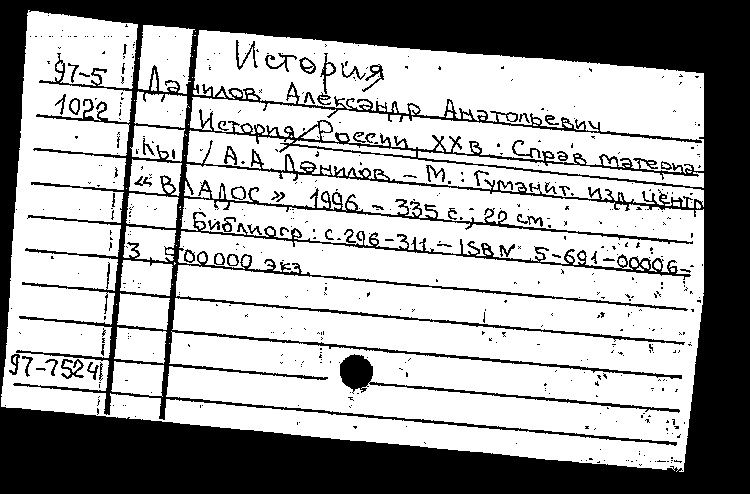 История
97-5 Данилов, Александр Анатольевич
1022 История России, XX в. : Справ. материа-
лы / А.А. Данилов. – М. : Гуманит. изд. центр
"ВЛАДОС", 1996. – 335 с.; 20 см.
Библиогр.: с. 296-311. – ISBN 5-691-00006-
3, 500000 экз.
97-7524